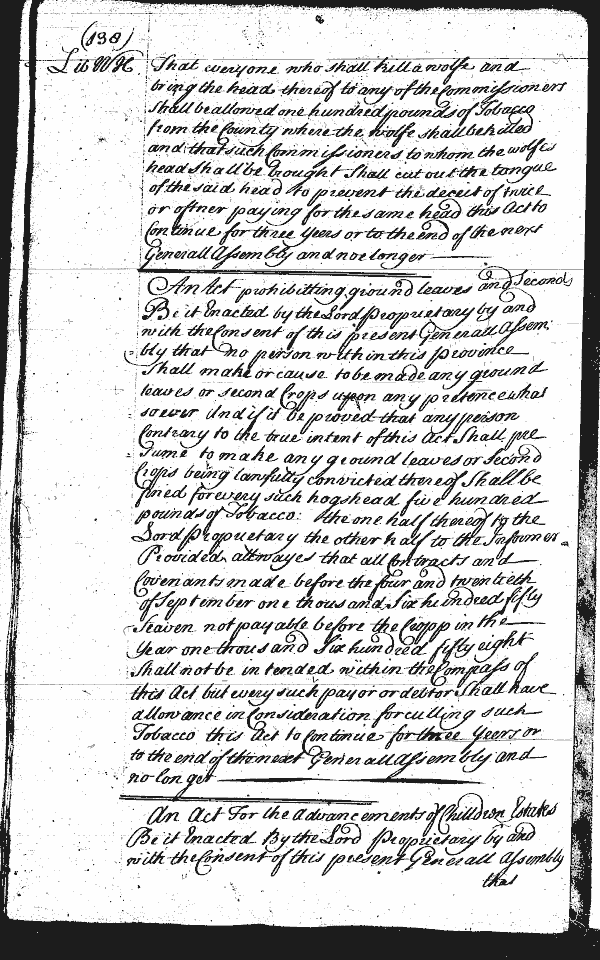 (138)
Lib W H
That everyone who shall kill a wolfe and
bring the head thereof to any of the Commissioners
Shall be allowed one hundred pounds of Tobacco
from the County where the wolfe shall be killed
and that such Commissioners to whom the wolfes
head Shall be brought Shall cut out the tongue
of the said head to prevent the deceit of twice
or oftner paying for the same head this Act to
Continue for three years or to the end of the next
Generall Assembly and no longer
An Act prohibitting ground leaves and Seconds
Be it Enacted by the Lord Proprietary by and
with the Consent of this present Generall Assem
bly that no person within this Province
Shall make or cause to be made any ground
leaves or second Crops upon any pretence what
soever And if it be proved that any person
Contrary to the true intent of this Act Shall pre
sume to make any ground leaves or Second
Crops being lawfully convicted thereof Shall be
fined for every such hogshead five hundred
pounds of Tobacco: the one half thereof to the
Lord Proprietary the other half to the Informer
Provided allwayes that all Contracts and
Covenants made before the four and twentieth
of September one thousand Six hundred fifty
Seaven not payable before the Cropp in the
Year one thousand Six hundred fifty eight
Shall not be intended within the Compass of
this Act but every such payor or debtor Shall have
allowance in Consideration for culling such
Tobacco this Act to Continue for three Years or
to the end of the next Generall Assembly and
no longer
An Act For the Advancements of Children Estates
Be it Enacted By the Lord Proprietary by and
with the Consent of this present Generall Assembly
that